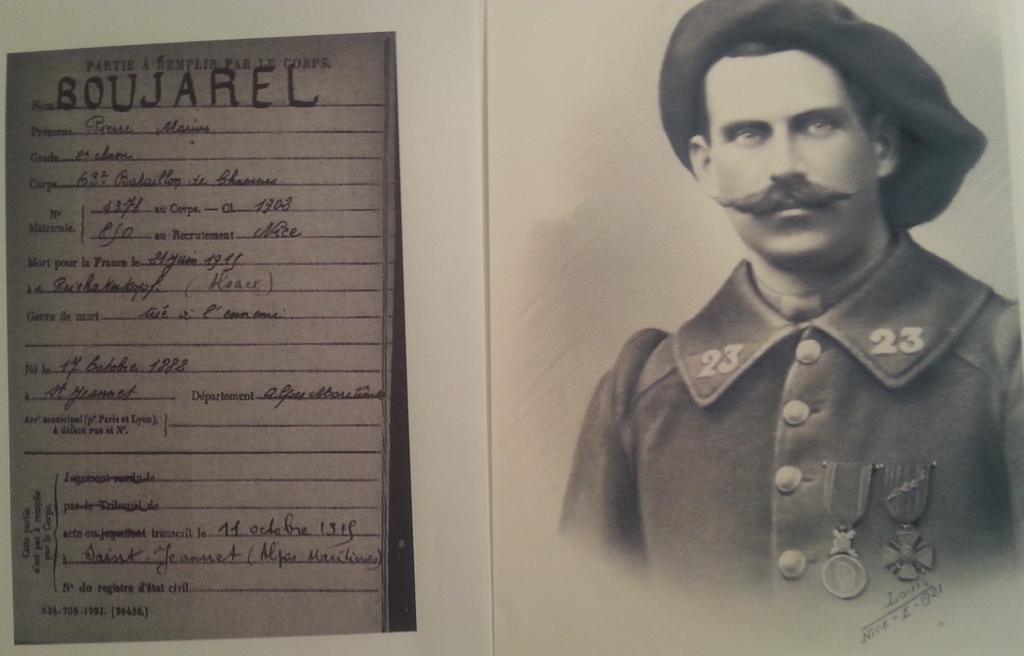 PARTIE À REMPLIR PAR LE CORPS.
Nom BOUJAREL
Prénoms Pierre Marius
Grade 2e classe
Corps 63e Bataillon de Chasseurs
Nº Matricule. 4378 au Corps. — Cl. 1903
850 au Recrutement Nice
Mort pour la France le 21 juin 1915
à Reichakerkopf (Alsace)
Genre de mort tué à l'ennemi
Né le 17 Octobre 1883
à St Jeannet Département Alpes Maritimes
Arrt municipal (pr Paris et Lyon), à défaut rue et Nº.
Cette partie n'est pas à remplir par le Corps.
Jugement rendu le
par le Tribunal de
acte ou jugement transcrit le 11 octobre 1915
à Saint-Jeannet (Alpes Maritimes)
Nº du registre d'état civil
534-708-1921. [26434.]
23 23
Louis
Nice-E-1921